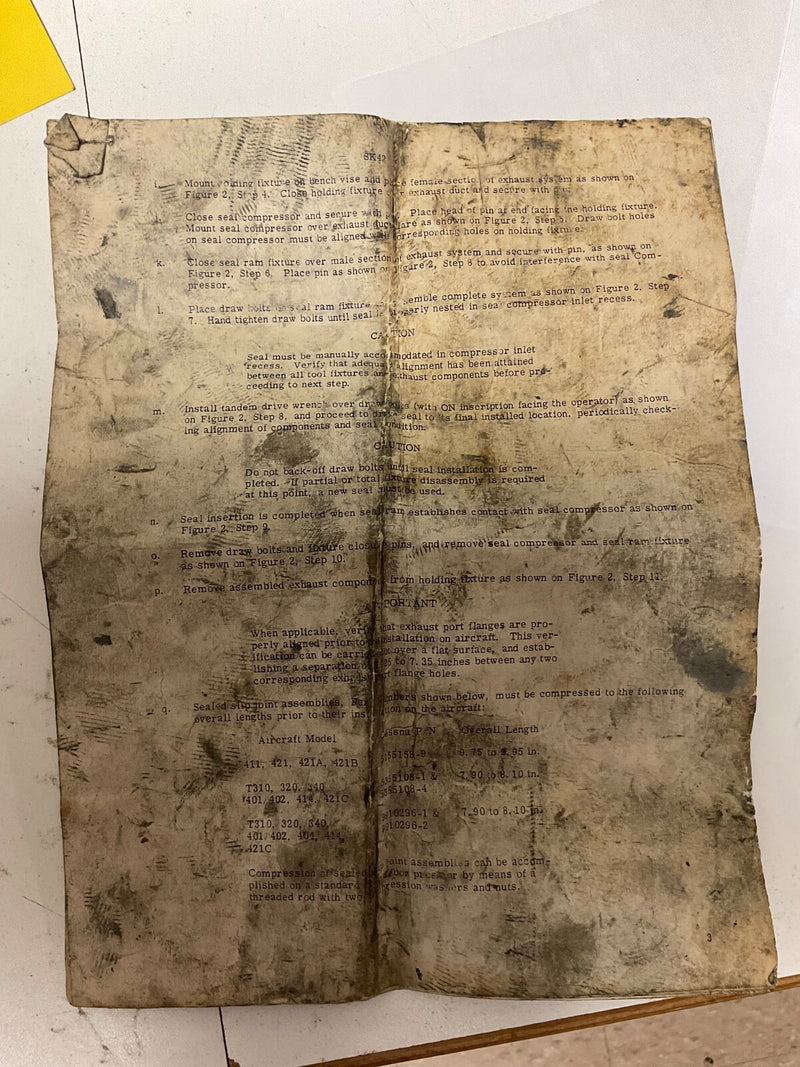 SK42
i. Mount holding fixture on bench vise and female section of exhaust system as shown on
Figure 2, Step 4. Close holding fixture exhaust duct and secure with
Close seal compressor and secure with Place head of pin at end facing the holding fixture.
Mount seal compressor over exhaust duct as shown on Figure 2, Step 5. Draw bolt holes
on seal compressor must be aligned with corresponding holes on holding fixture.
k. Close seal ram fixture over male section of exhaust system and secure with pin, as shown on
Figure 2, Step 6. Place pin as shown on Figure 2, Step 8 to avoid interference with seal Com-
pressor.
l. Place draw bolts on seal ram fixture assemble complete system as shown on Figure 2, Step
7. Hand tighten draw bolts until seal is nested in seal compressor inlet recess.
CAUTION
Seal must be manually accommodated in compressor inlet
recess. Verify that adequate alignment has been attained
between all tool fixtures and exhaust components before pro-
ceeding to next step.
m. Install tandem drive wrench over draw bolts (with ON inscription facing the operator) as shown
on Figure 2, Step 8, and proceed to seal to its final installed location, periodically check-
ing alignment of components and seal condition.
CAUTION
Do not back-off draw bolts until seal installation is com-
pleted. If partial or total fixture disassembly is required
at this point, a new seal must be used.
n. Seal insertion is completed when seal ram establishes contact with seal compressor as shown on
Figure 2, Step 9.
o. Remove draw bolts and fixture closing pins, and remove seal compressor and seal ram fixture
as shown on Figure 2, Step 10.
p. Remove assembled exhaust components from holding fixture as shown on Figure 2, Step 11.
IMPORTANT
When applicable, verify that exhaust port flanges are pro-
perly aligned prior to installation on aircraft. This ver-
ification can be carried over a flat surface, and estab-
lishing a separation of to 7.35 inches between any two
corresponding exhaust flange holes.
q. Sealed slip joint assemblies, numbers shown below, must be compressed to the following
overall lengths prior to their installation on the aircraft:
Aircraft Model Cessna P/N Overall Length
411, 421, 421A, 421B 55158-9 9.75 to 9.95 in.
T310, 320, 340 55108-1 & 7.90 to 8.10 in.
401, 402, 414, 421C 55108-4
T310, 320, 340, 10296-1 & 7.90 to 8.10 in.
401, 402, 404, 414, 10296-2
421C
Compression of sealed joint assemblies can be accom-
plished on a standard arbor press or by means of a
threaded rod with two compression washers and nuts.
3